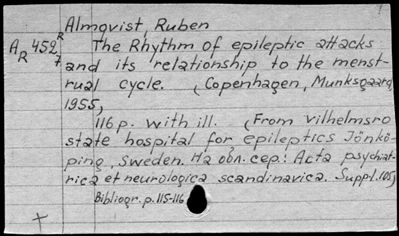 Almqvist, Ruben
A R 452 R 7
The Rhythm of epileptic attacks
and its relationship to the menst-
rual cycle. (Copenhagen, Munksgaard,
1955,
116 p. with ill. (From vilhelmsro
state hospital for epileptics Jönkö-
ping, Sweden. На обл. сер.: Acta psychiat-
rica et neurologica scandinavica. Suppl. 105)
Bibliogr. p. 115-116